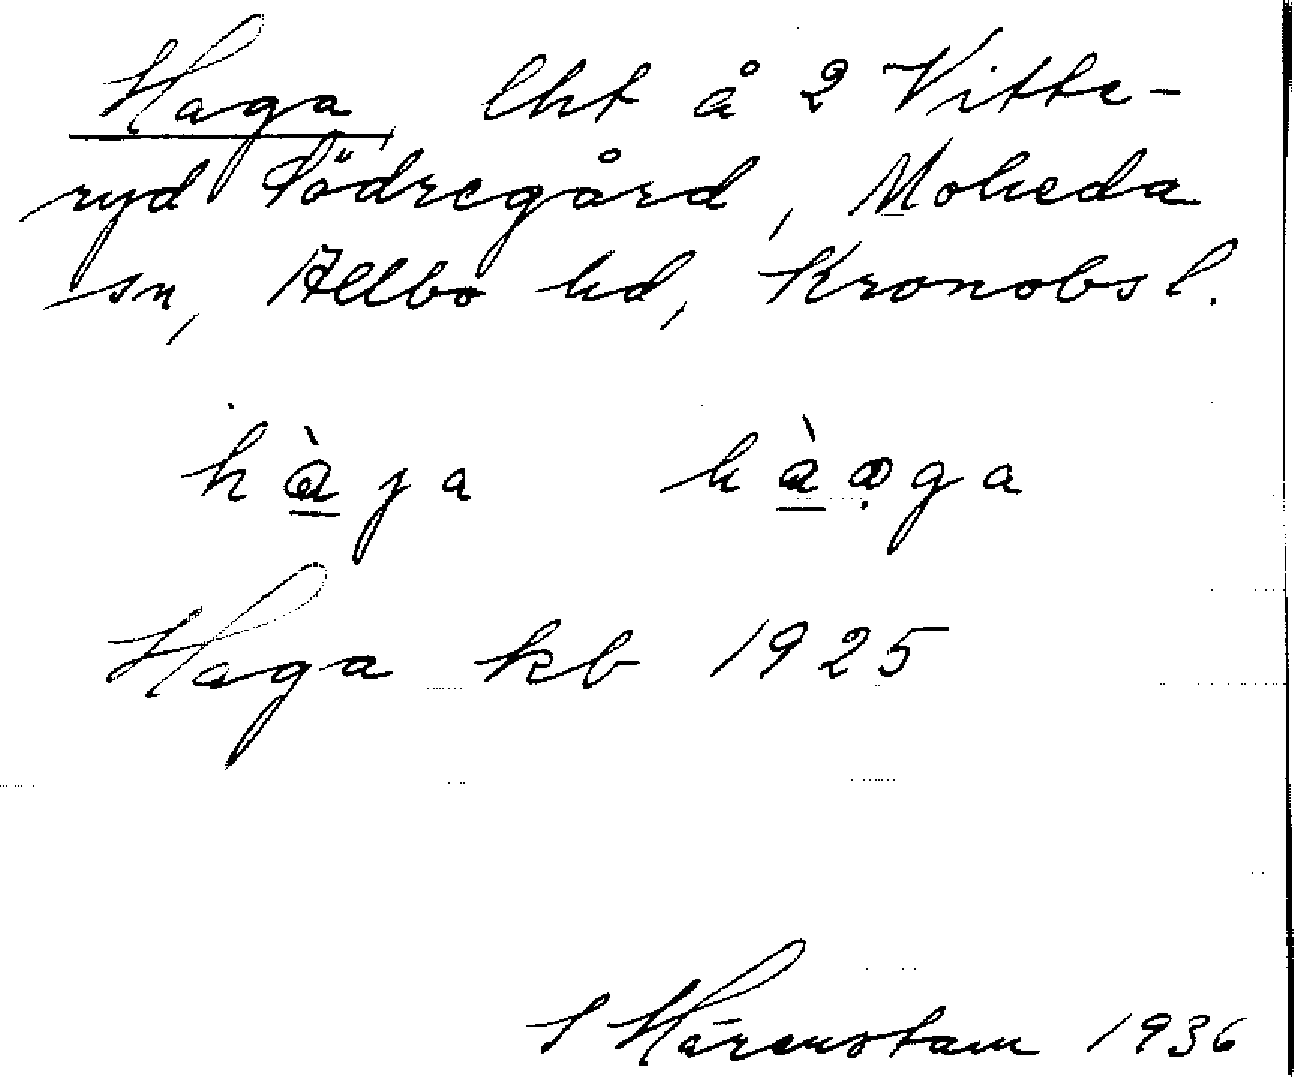 Haga, lht å 2 Vitte-
ryd Södregård, Moheda
sn, Allbo hd, Kronobs l.
hàga hàaga
Haga kb 1925
S Härenstam 1936